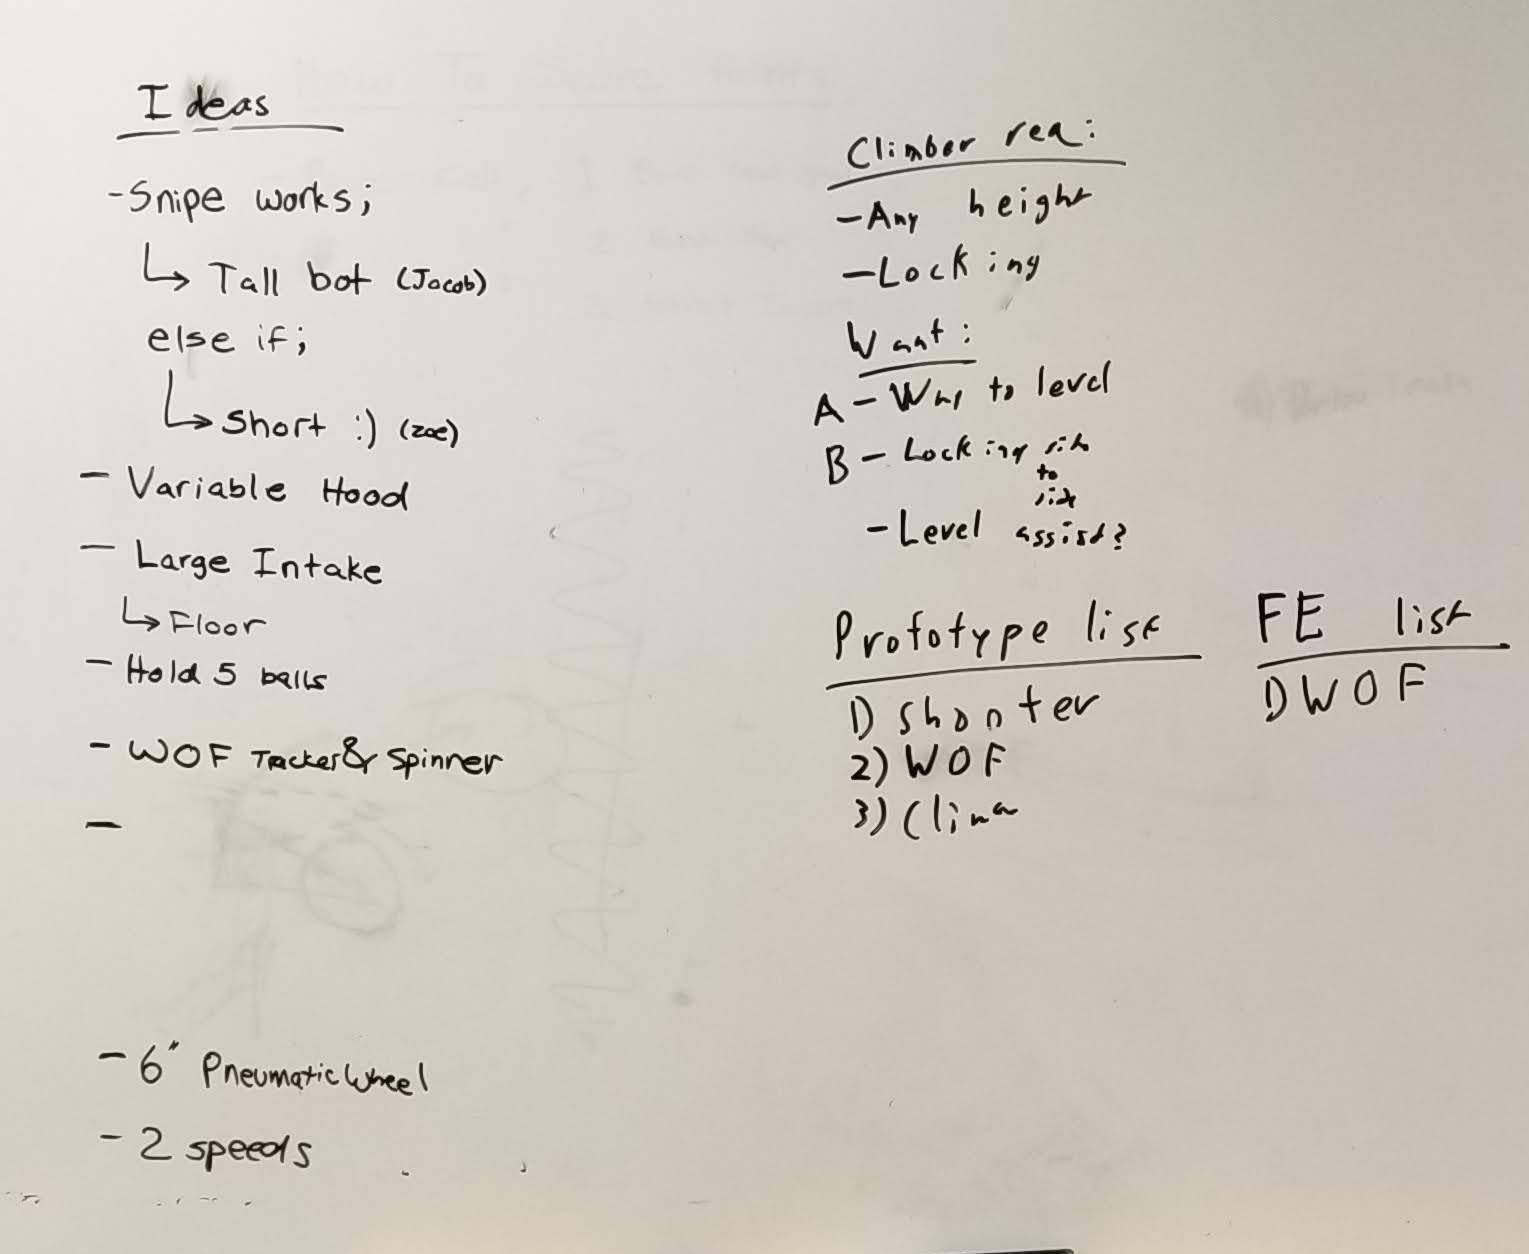 Ideas
- Snipe works;
↳ Tall bot (Jacob)
else if;
↳ Short :) (zoe)
- Variable Hood
- Large Intake
↳ Floor
- Hold 5 balls
- WOF Tracker & Spinner
-
- 6" Pneumatic Wheel
- 2 speeds
Climber req:
- Any height
- Locking
Want:
A - Way to level
B - Locking side
to
side
- Level assist?
Prototype list
1) Shooter
2) WOF
3) Clim
FE list
1) WOF